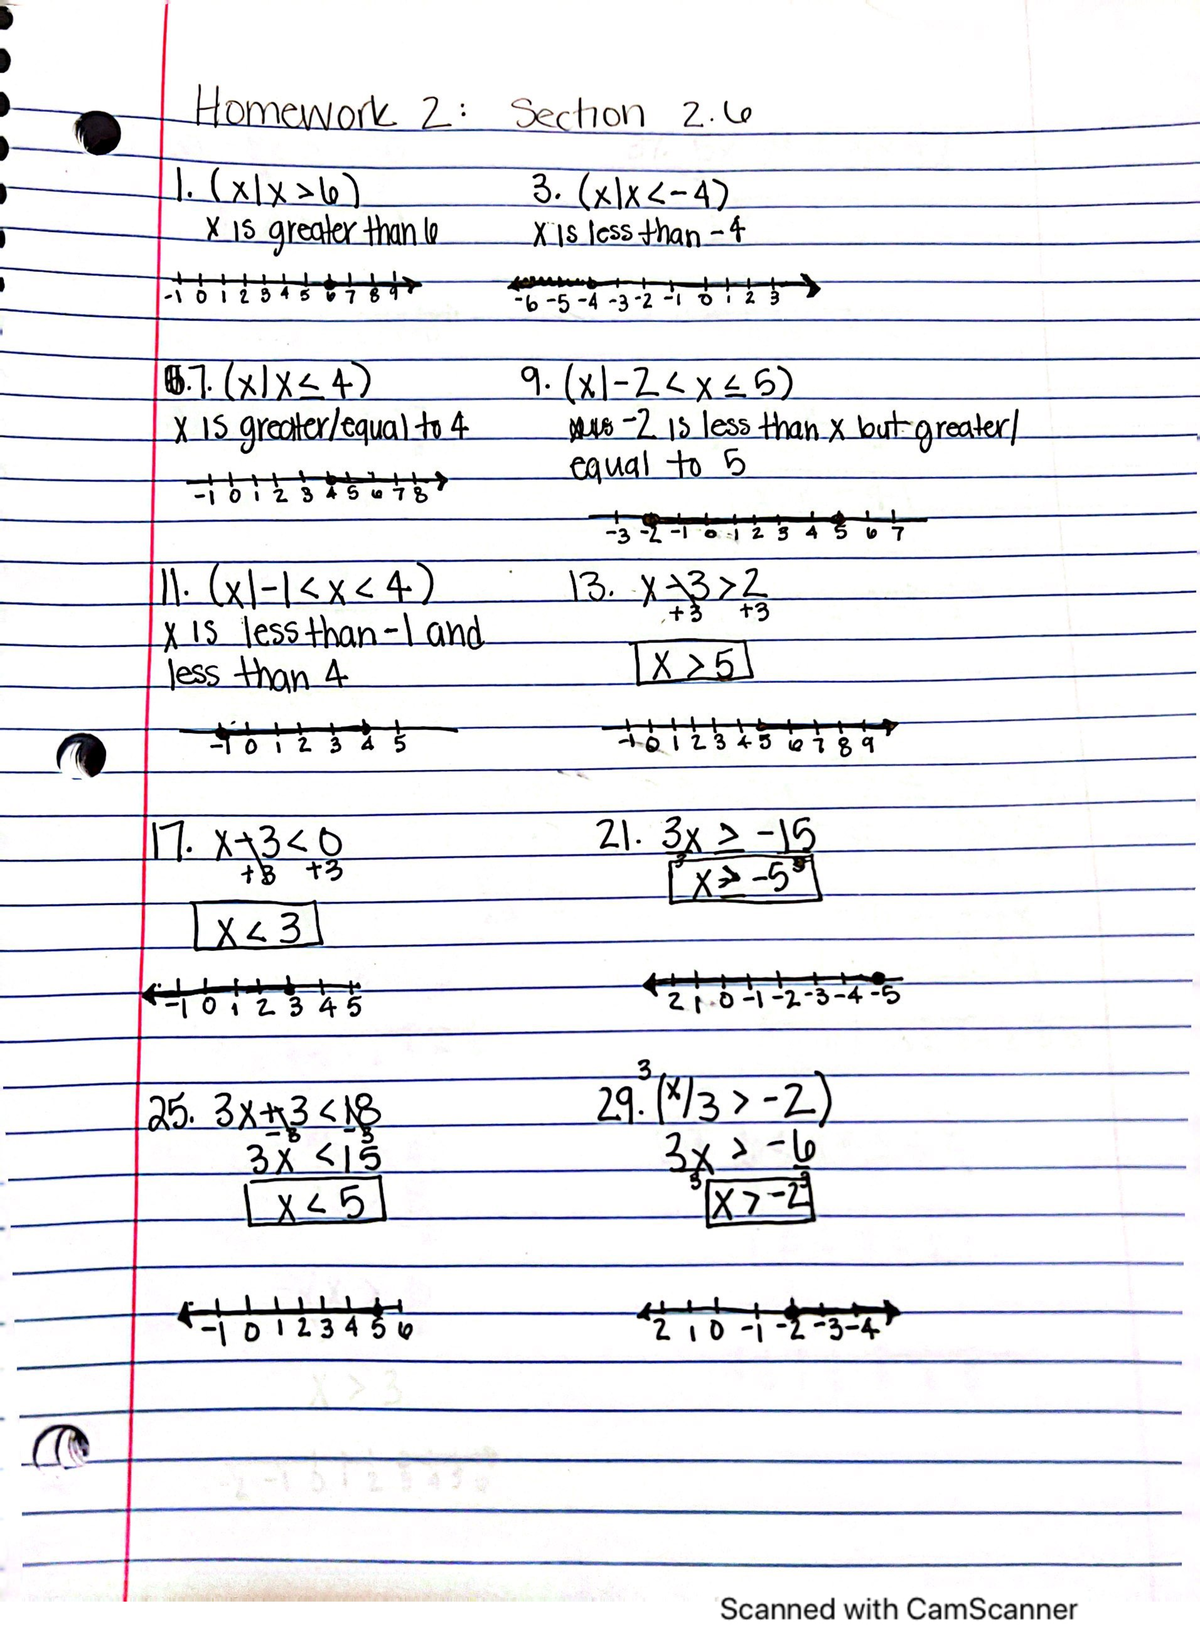 Homework 2: Section 2.6
1. (x|x>6)
x is greater than 6
-1 0 1 2 3 4 5 6 7 8 9
3. (x|x<-4)
x is less than -4
-6 -5 -4 -3 -2 -1 0 1 2 3
7. (x|x≤4)
x is greater/equal to 4
-1 0 1 2 3 4 5 6 7 8
9. (x|-2<x≤5)
-2 is less than x but greater/
equal to 5
-3 -2 -1 0 -1 2 3 4 5 6 7
11. (x|-1<x<4)
x is less than -1 and
less than 4
-1 0 1 2 3 4 5
13. x-3>2
+3 +3
x>5
-1 0 1 2 3 4 5 6 7 8 9
17. x+3<0
+3 +3
x<3
-1 0 1 2 3 4 5
21. 3x ≥ -15
3 3
x≥-5
2 1 0 -1 -2 -3 -4 -5
25. 3x+3<18
-3 -3
3x <15
x<5
-1 0 1 2 3 4 5 6
3
29. (x/3 > -2)
3x > -6
3 3
x>-2
2 1 0 -1 -2 -3 -4
x>3
Scanned with CamScanner